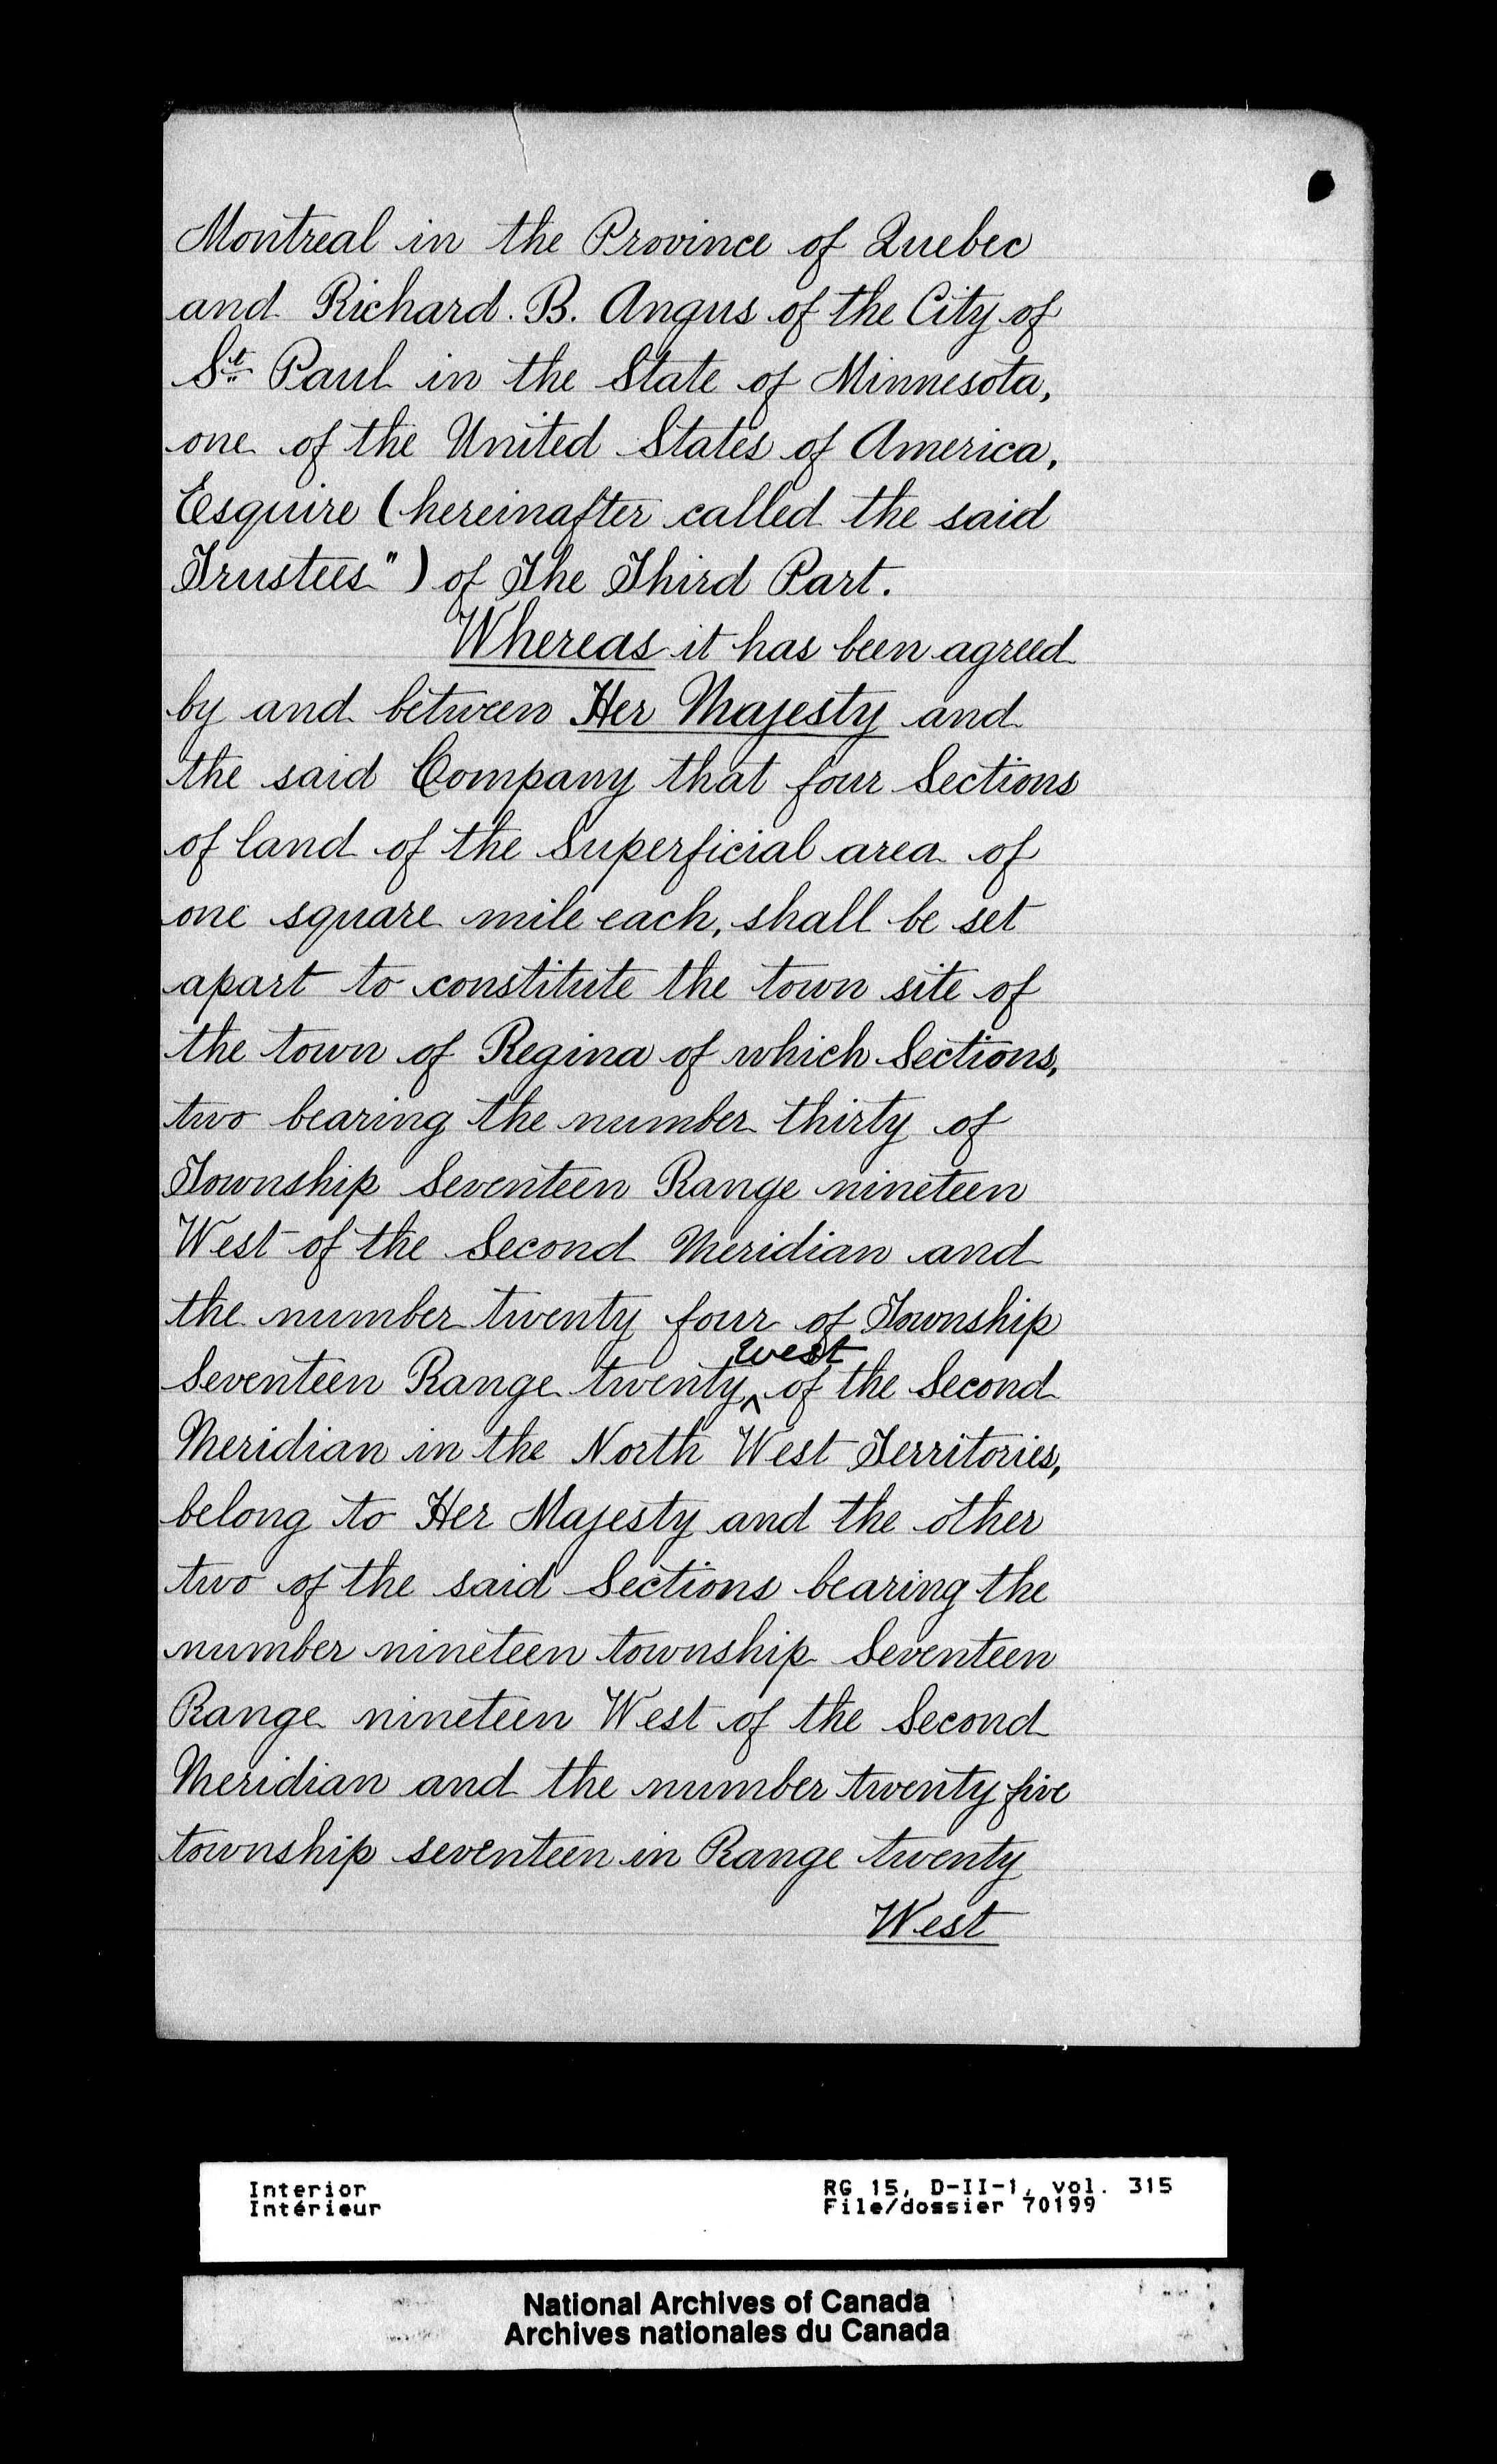 Montreal in the Province of Quebec
and Richard. B. Angus of the City of
St. Paul in the State of Minnesota,
one of the United States of America,
Esquire (hereinafter called the said
Trustees") of The Third Part.
Whereas it has been agreed
by and between Her Majesty and
the said Company that four Sections
of land of the Superficial area of
one square mile each, shall be set
apart to constitute the town site of
the town of Regina of which Sections,
two bearing the number thirty of
Township Seventeen Range nineteen
West of the Second Meridian and
the number twenty four of Township
west
Seventeen Range twenty ^ of the Second
Meridian in the North West Territories,
belong to Her Majesty and the other
two of the said Sections bearing the
number nineteen township Seventeen
Range nineteen West of the Second
Meridian and the number twenty five
township seventeen in Range twenty
West
Interior RG 15, D-II-1, vol. 315
Intérieur File/dossier 70199
National Archives of Canada
Archives nationales du Canada